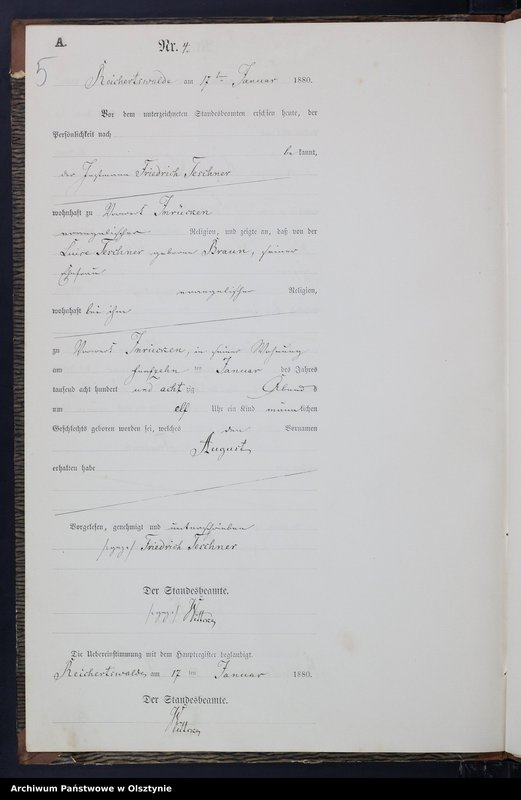 A.
Nr. 4.
5
Reichertswalde am 17ten Januar 1880.
Vor dem unterzeichneten Standesbeamten erschien heute, der
Persönlichkeit nach
be kannt,
der Instmann Friedrich Teschner
wohnhaft zu Vorwerk Inrücken
evangelischer Religion, und zeigte an, daß von der
Luise Teschner geborene Braun, seiner
Ehefrau
evangelischer Religion,
wohnhaft bei ihm
zu Vorwerk Inrücken, in seiner Wohnung
am fünfzehn ten Januar des Jahres
tausend acht hundert und acht zig Abends
um elf Uhr ein Kind männlichen
Geschlechts geboren worden sei, welches den Vornamen
August
erhalten habe
Vorgelesen, genehmigt und unterschrieben
Friedrich Teschner
Der Standesbeamte.
Die Uebereinstimmung mit dem Hauptregister beglaubigt.
Reichertswalde, am 17 ten Januar 1880.
Der Standesbeamte.
Archiwum Państwowe w Olsztynie